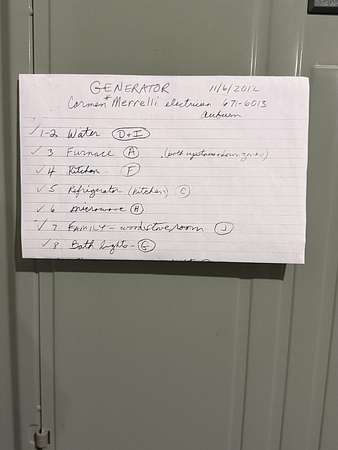 GENERATOR 11/6/2012
Carmen Merrelli electrician 671-6013
auburn
✓ 1-2 Water (D+I)
✓ 3 Furnace (A) (both upstairs + down
✓ 4 Kitchen (F)
✓ 5 Refrigerator (kitchen) (C)
✓ 6 microwave
✓ 7 FAMILY - woodstove room (J)
✓ 8 Bath lights - (G)